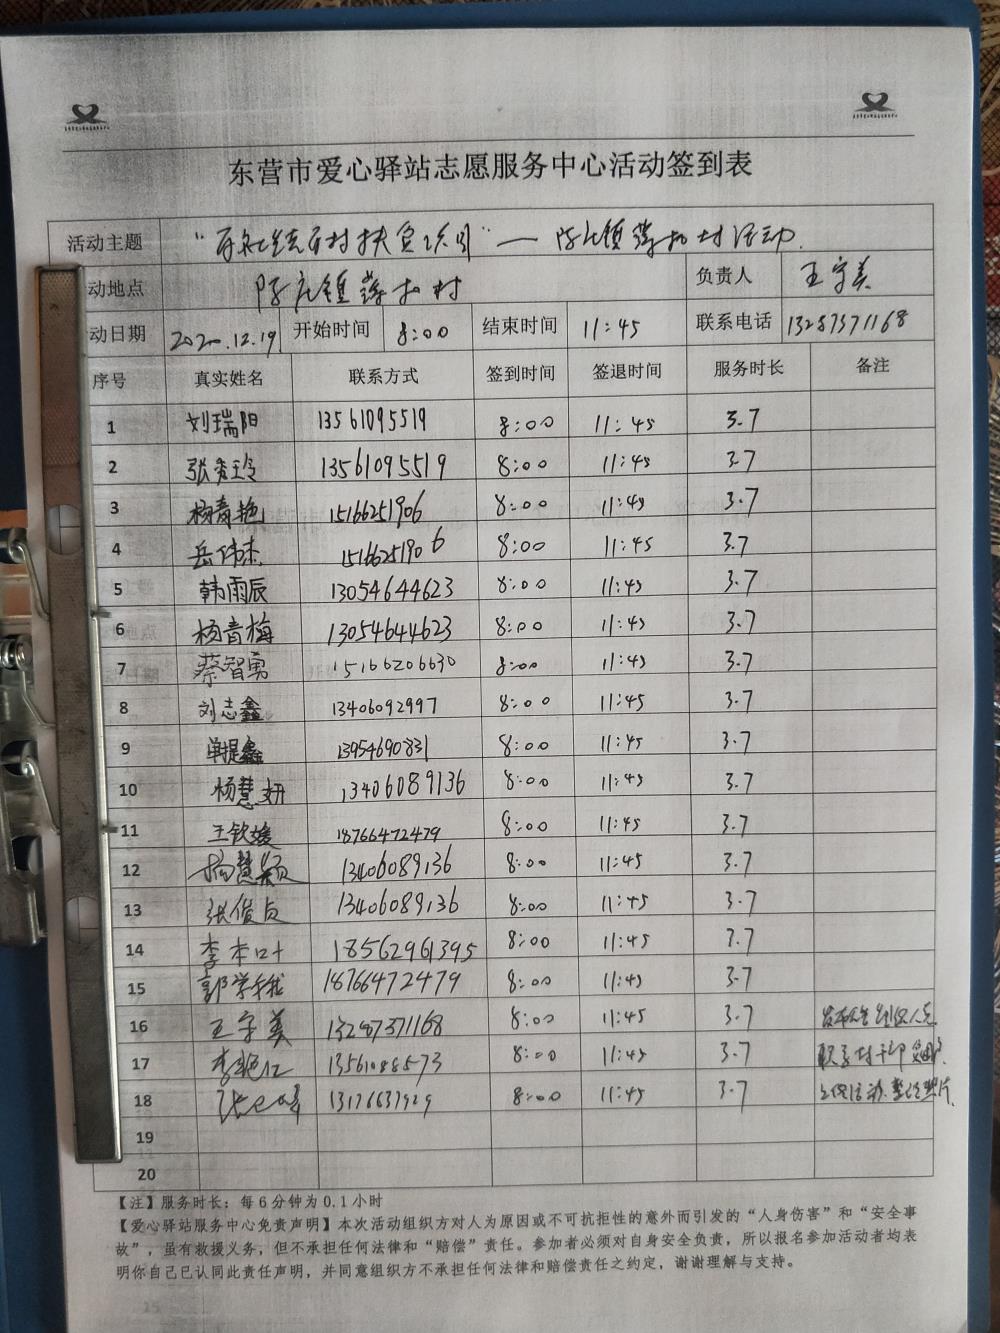 东营市爱心驿站志愿服务中心活动签到表
活动主题 扶贫项目"— 陈庄镇 村活动.
动地点 陈庄镇 村 负责人 王字美
动日期 2020.12.19. 开始时间 8:00 结束时间 11:45 联系电话 13287371168
序号 真实姓名 联系方式 签到时间 签退时间 服务时长 备注
1 刘瑞阳 13561095519 8:00 11:45 3.7
2 张秀玲 13561095519 8:00 11:45 3.7
3 杨青艳 15166251906 8:00 11:45 3.7
4 岳伟杰 15166251906 8:00 11:45 3.7
5 韩雨辰 13054644623 8:00 11:45 3.7
6 杨青梅 13054644623 8:00 11:45 3.7
7 蔡智勇 15166206630 8:00 11:45 3.7
8 刘志鑫 13406092997 8:00 11:45 3.7
9 13954690831 8:00 11:45 3.7
10 杨慧妍 13406089136 8:00 11:45 3.7
11 王钦媛 18766472479 8:00 11:45 3.7
12 杨慧颖 13406089136 8:00 11:45 3.7
13 张俊贞 13406089136 8:00 11:45 3.7
14 李本叶 18562961395 8:00 11:45 3.7
15 郭学 18766472479 8:00 11:45 3.7
16 王字美 13287371168 8:00 11:45 3.7
17 李艳红 13561088573 8:00 11:45 3.7 联系村干部
18 13176637929 8:00 11:45 3.7
19
20
【注】服务时长：每6分钟为0.1小时
【爱心驿站服务中心免责声明】本次活动组织方对人为原因或不可抗拒性的意外而引发的“人身伤害”和“安全事
故”，虽有救援义务，但不承担任何法律和“赔偿”责任。参加者必须对自身安全负责，所以报名参加活动者均表
明你自己已认同此责任声明，并同意组织方不承担任何法律和赔偿责任之约定，谢谢理解与支持。